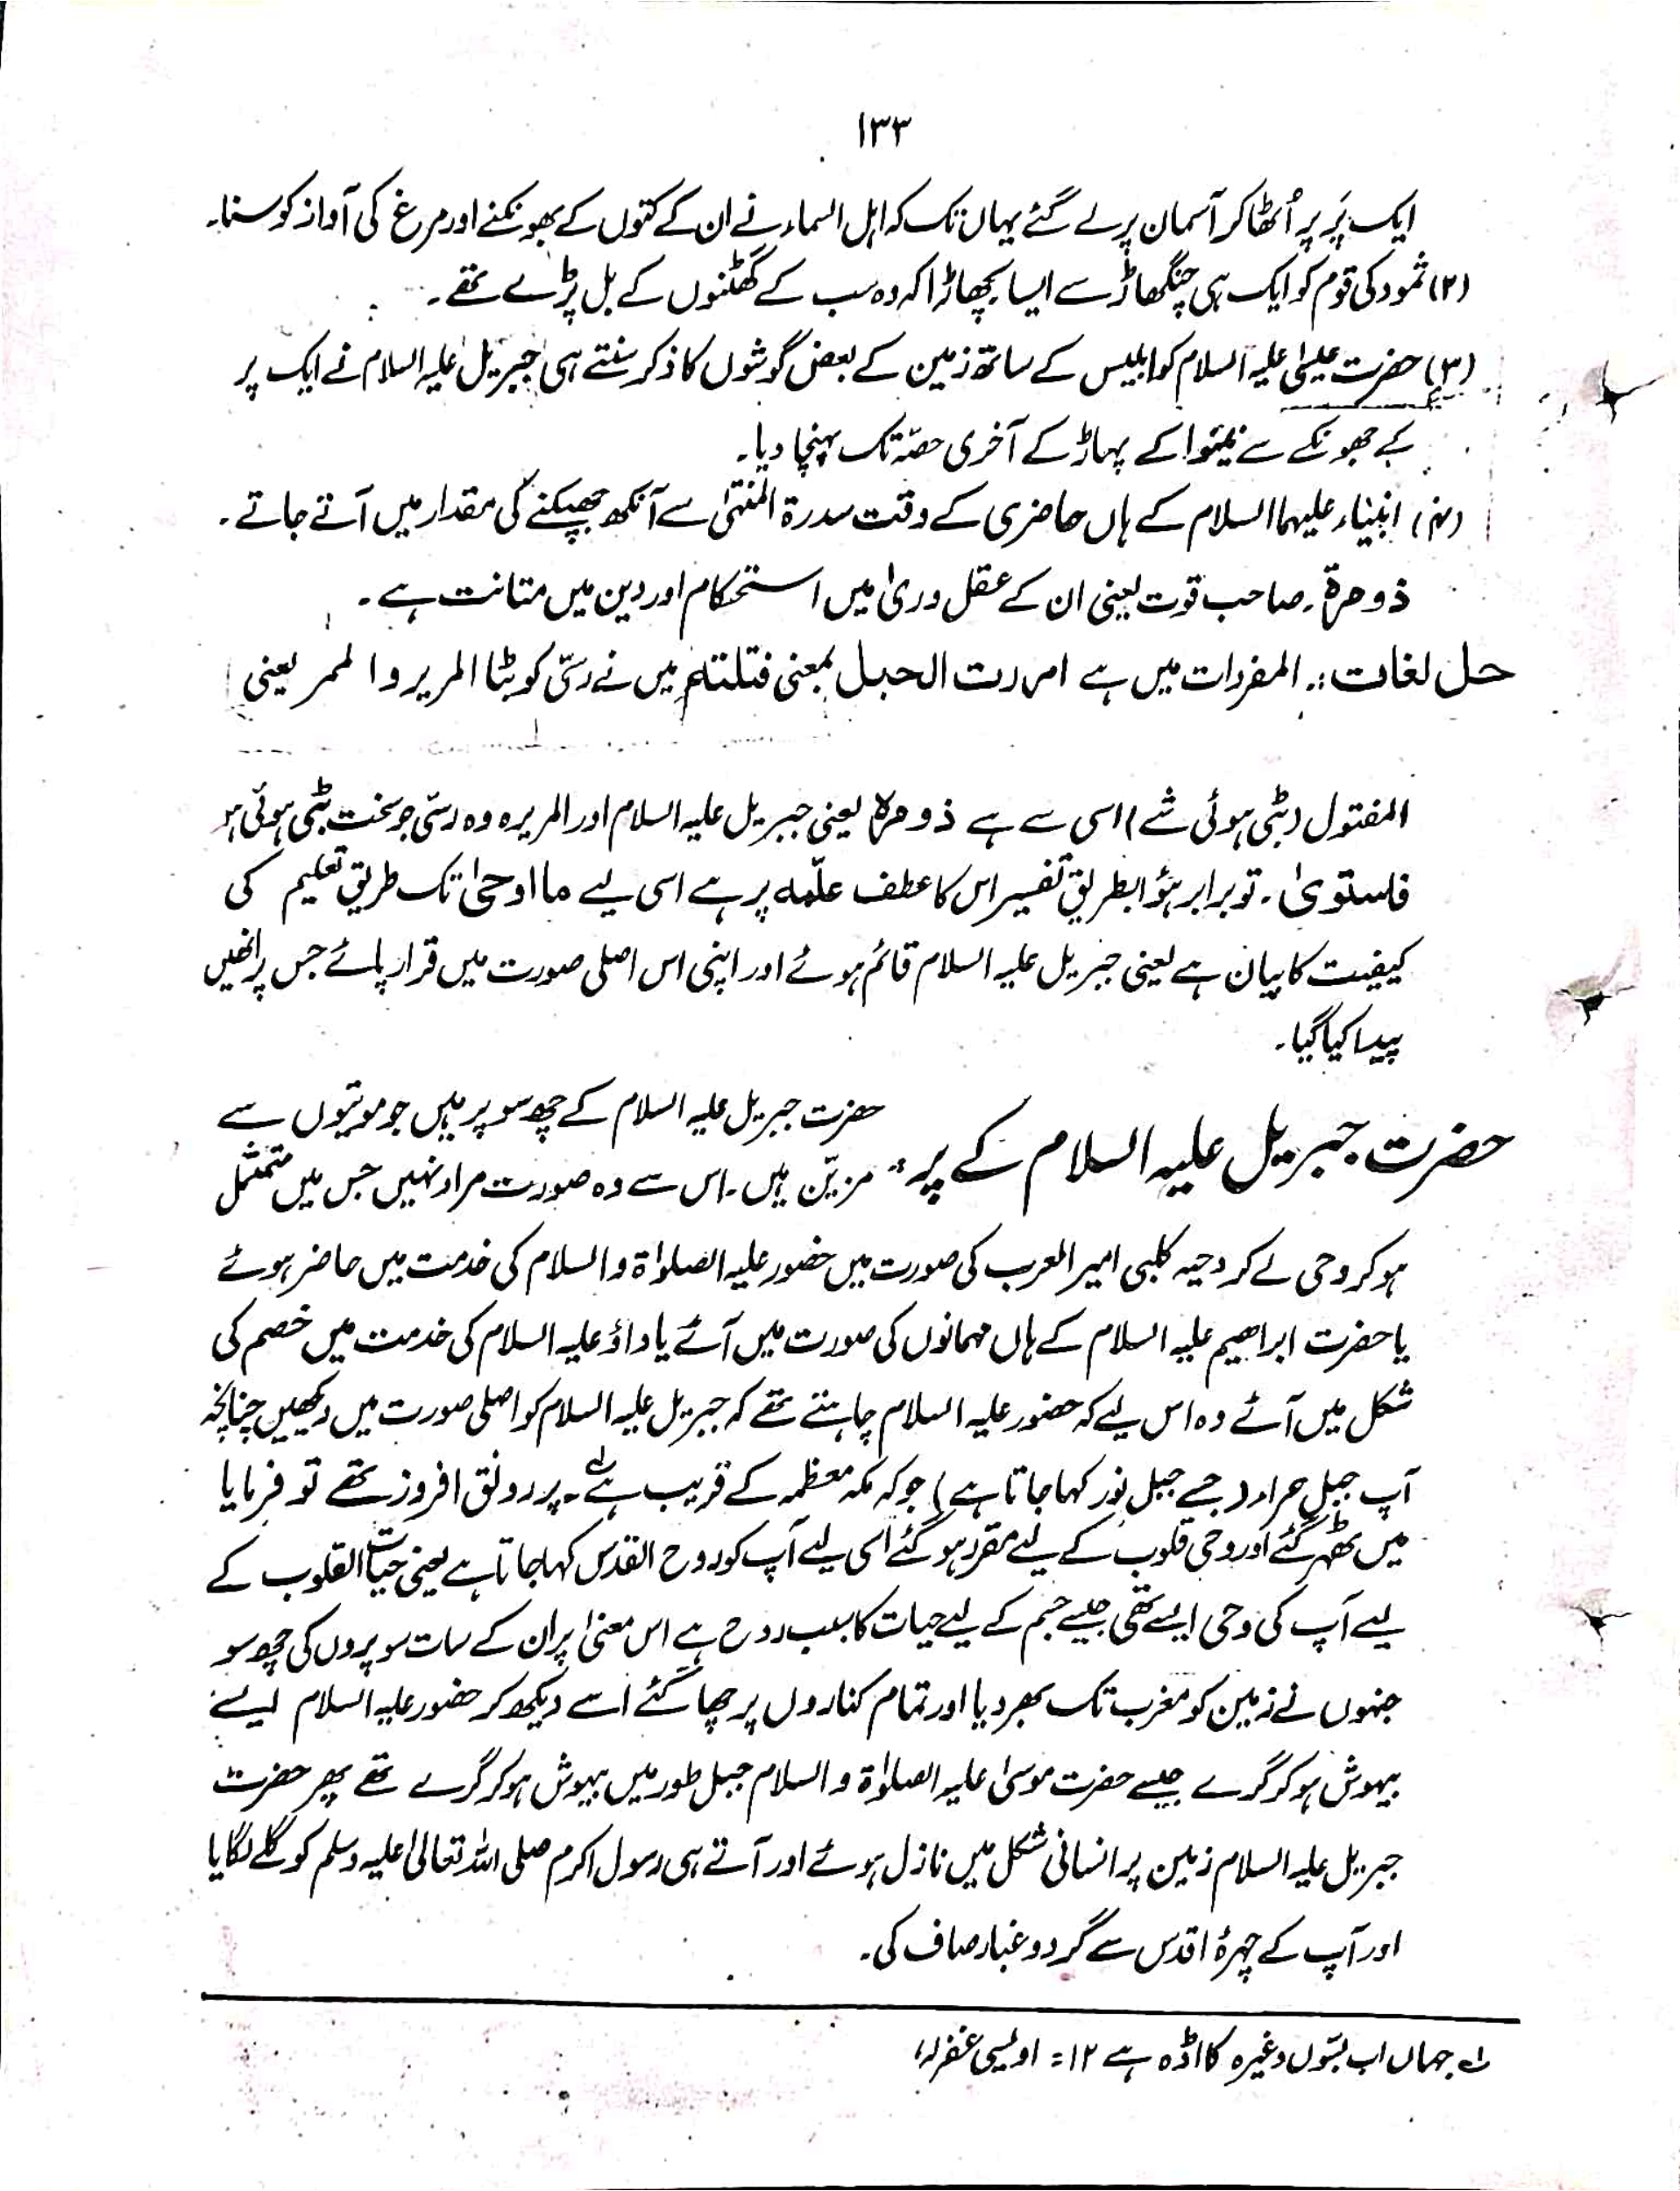 ۱۳۳
ایک پَر پر اُٹھا کر آسمان پر لے گئے یہاں تک کہ اہل السماء نے ان کے کتوں کے بھونکنے اور مرغ کی آواز کو سنا۔
(۲) ثمود کی قوم کو ایک ہی چنگھاڑ سے ایسا پچھاڑا کہ وہ سب کے گھٹنوں کے بل پڑے تھے۔
(۳) حضرت عیسٰی علیہ السلام کو ابلیس کے ساتھ زمین کے بعض گوشوں کا ذکر سنتے ہی جبریل علیہ السلام نے ایک پر
کے جھونکے سے نینوا کے پہاڑ کے آخری حصّہ تک پہنچا دیا۔
(۴) انبیاء علیہما السلام کے ہاں حاضری کے وقت سدرۃ المنتہٰی سے آنکھ جھپکنے کی مقدار میں آتے جاتے۔
ذو مرۃ۔ صاحب قوت یعنی ان کے عقل ورئ میں استحکام اور دین میں متانت ہے۔
حل لغات :۔ المفردات میں ہے امررت الحبل بمعنی فتلتہ میں نے رسّی کو بٹا المریر والممر یعنی
المفتول (بٹی ہوئی شے) اسی سے ہے ذو مرۃ یعنی جبریل علیہ السلام اور المریرہ وہ رسّی جو سخت بٹی ہوئی ہو
فاستوی۔ تو برابر ہؤا بطریق تفسیر اس کا عطف علّمہ پر ہے اسی لیے ما اوحیٰ تک طریق تعلیم کی
کیفیت کا بیان ہے یعنی جبریل علیہ السلام قائم ہوئے اور اپنی اس اصلی صورت میں قرار پائے جس پر انھیں
پیدا کیا گیا۔
حضرت جبریل علیہ السلام کے پر :۔ حضرت جبریل علیہ السلام کے چھ سو پر ہیں جو موتیوں سے
مزیّن ہیں۔ اس سے وہ صورت مراد نہیں جس میں متمثل
ہو کر وحی لے کر دحیہ کلبی امیر العرب کی صورت میں حضور علیہ الصلوٰۃ والسلام کی خدمت میں حاضر ہوئے
یا حضرت ابراھیم علیہ السلام کے ہاں مہمانوں کی صورت میں آئے یا داؤد علیہ السلام کی خدمت میں خصم کی
شکل میں آئے وہ اس لیے کہ حضور علیہ السلام چاہتے تھے کہ جبریل علیہ السلام کو اصلی صورت میں دیکھیں چنانچہ
آپ جبل حراء (جسے جبل نور کہا جاتا ہے) جو کہ مکہ معظمہ کے قریب ہے لہ۔ پر رونق افروز تھے تو فرمایا
میں ٹھہر گئے اور وحی قلوب کے لیے مقرر ہو گئے اسی لیے آپ کو روح القدس کہا جاتا ہے یعنی حیات القلوب کے
لیے آپ کی وحی ایسے تھی جیسے جسم کے لیے حیات کا سبب روح ہے اس معنیٰ پر ان کے سات سو پروں کی چھ سو
جنہوں نے زمین کو مغرب تک بھر دیا اور تمام کناروں پر چھا گئے اسے دیکھ کر حضور علیہ السلام ایسے
بیہوش ہو کر گرے جیسے حضرت موسیٰ علیہ الصلوٰۃ والسلام جبل طور میں بیہوش ہو کر گرے تھے پھر حضرت
جبریل علیہ السلام زمین پر انسانی شکل میں نازل ہوئے اور آتے ہی رسول اکرم صلی اللہ تعالیٰ علیہ وسلم کو گلے لگایا
اور آپ کے چہرۂ اقدس سے گرد و غبار صاف کی۔
لہ جہاں اب بسّوں وغیرہ کا اڈہ ہے ۱۲ = اویسی غفرلہٗ